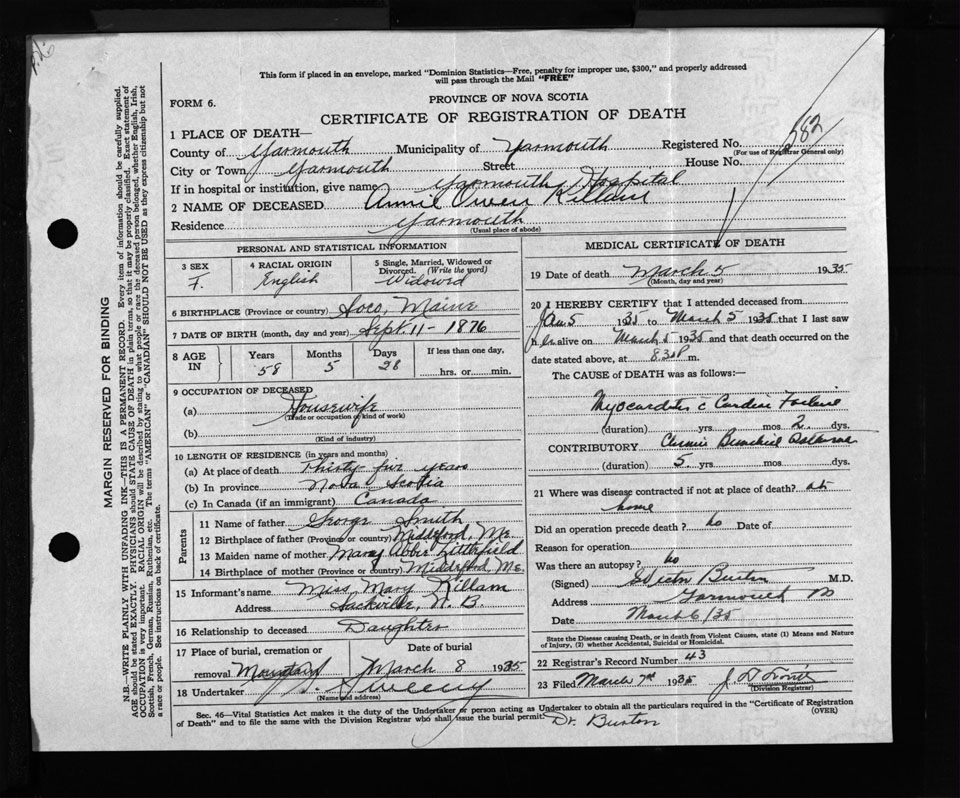 This form if placed in an envelope, marked "Dominion Statistics—Free, penalty for improper use, $300," and properly addressed
will pass through the Mail "FREE"
FORM 6.
PROVINCE OF NOVA SCOTIA
CERTIFICATE OF REGISTRATION OF DEATH
1 PLACE OF DEATH—
County of Yarmouth Municipality of Yarmouth Registered No. 582
(For use of Registrar General only)
City or Town Yarmouth Street House No.
If in hospital or institution, give name Yarmouth Hospital
2 NAME OF DECEASED Annie Owen Killam
Residence Yarmouth
(Usual place of abode)
PERSONAL AND STATISTICAL INFORMATION
3 SEX F.
4 RACIAL ORIGIN English
5 Single, Married, Widowed or Divorced. (Write the word) Widowed
6 BIRTHPLACE (Province or country) Soco, Maine
7 DATE OF BIRTH (month, day and year) Sept. 11 - 1876
8 AGE IN Years 58 Months 5 Days 28 If less than one day, hrs. or min.
9 OCCUPATION OF DECEASED
(a) Housewife
(Trade or occupation or kind of work)
(b)
(Kind of industry)
10 LENGTH OF RESIDENCE (in years and months)
(a) At place of death Thirty five years
(b) In province Nova Scotia
(c) In Canada (if an immigrant) Canada
Parents
11 Name of father George Smith
12 Birthplace of father (Province or country) Middeford, Me.
13 Maiden name of mother Mary Abbie Littlefield
14 Birthplace of mother (Province or country) Middeford, Me.
15 Informant's name Miss Mary Killam
Address Sackville, N. B.
16 Relationship to deceased Daughter
17 Place of burial, cremation or removal Mountain Date of burial March 8 1935
18 Undertaker Sweeny
(Name and address)
MEDICAL CERTIFICATE OF DEATH
19 Date of death March 5 1935
(Month, day and year)
20 I HEREBY CERTIFY that I attended deceased from
Jan 5 1935 to March 5 1935 that I last saw
h er alive on March 5 1935 and that death occurred on the
date stated above, at 8 30 P m.
The CAUSE of DEATH was as follows:—
Myocarditis c Cardiac Failure
(duration) yrs. mos. 2 dys.
CONTRIBUTORY Chronic Bronchial Asthma
(duration) 5 yrs. mos. dys.
21 Where was disease contracted if not at place of death? at
home
Did an operation precede death? no Date of
Reason for operation
Was there an autopsy? no
(Signed) Burton M.D.
Address Yarmouth
Date March 6/35
State the Disease causing Death, or in death from Violent Causes, state (1) Means and Nature
of Injury, (2) whether Accidental, Suicidal or Homicidal.
22 Registrar's Record Number 43
23 Filed March 7th 1935
(Division Registrar)
Sec. 46—Vital Statistics Act makes it the duty of the Undertaker or person acting as Undertaker to obtain all the particulars required in the "Certificate of Registration
of Death" and to file the same with the Division Registrar who shall issue the burial permit. (OVER)
Dr. Burton
MARGIN RESERVED FOR BINDING
N.B.—WRITE PLAINLY WITH UNFADING INK—THIS IS A PERMANENT RECORD. Every item of information should be carefully supplied.
AGE should be stated EXACTLY. PHYSICIANS should STATE CAUSE OF DEATH in plain terms, so that it may be properly classified. Exact statement of
OCCUPATION is very important. RACIAL ORIGIN will be described by stating to what people or race the deceased person belonged, whether English, Irish,
Scottish, French, German, Russian, Ruthenian, etc. The terms "AMERICAN" or "CANADIAN" SHOULD NOT BE USED as they express citizenship but not
a race or people. See instructions on back of certificate.